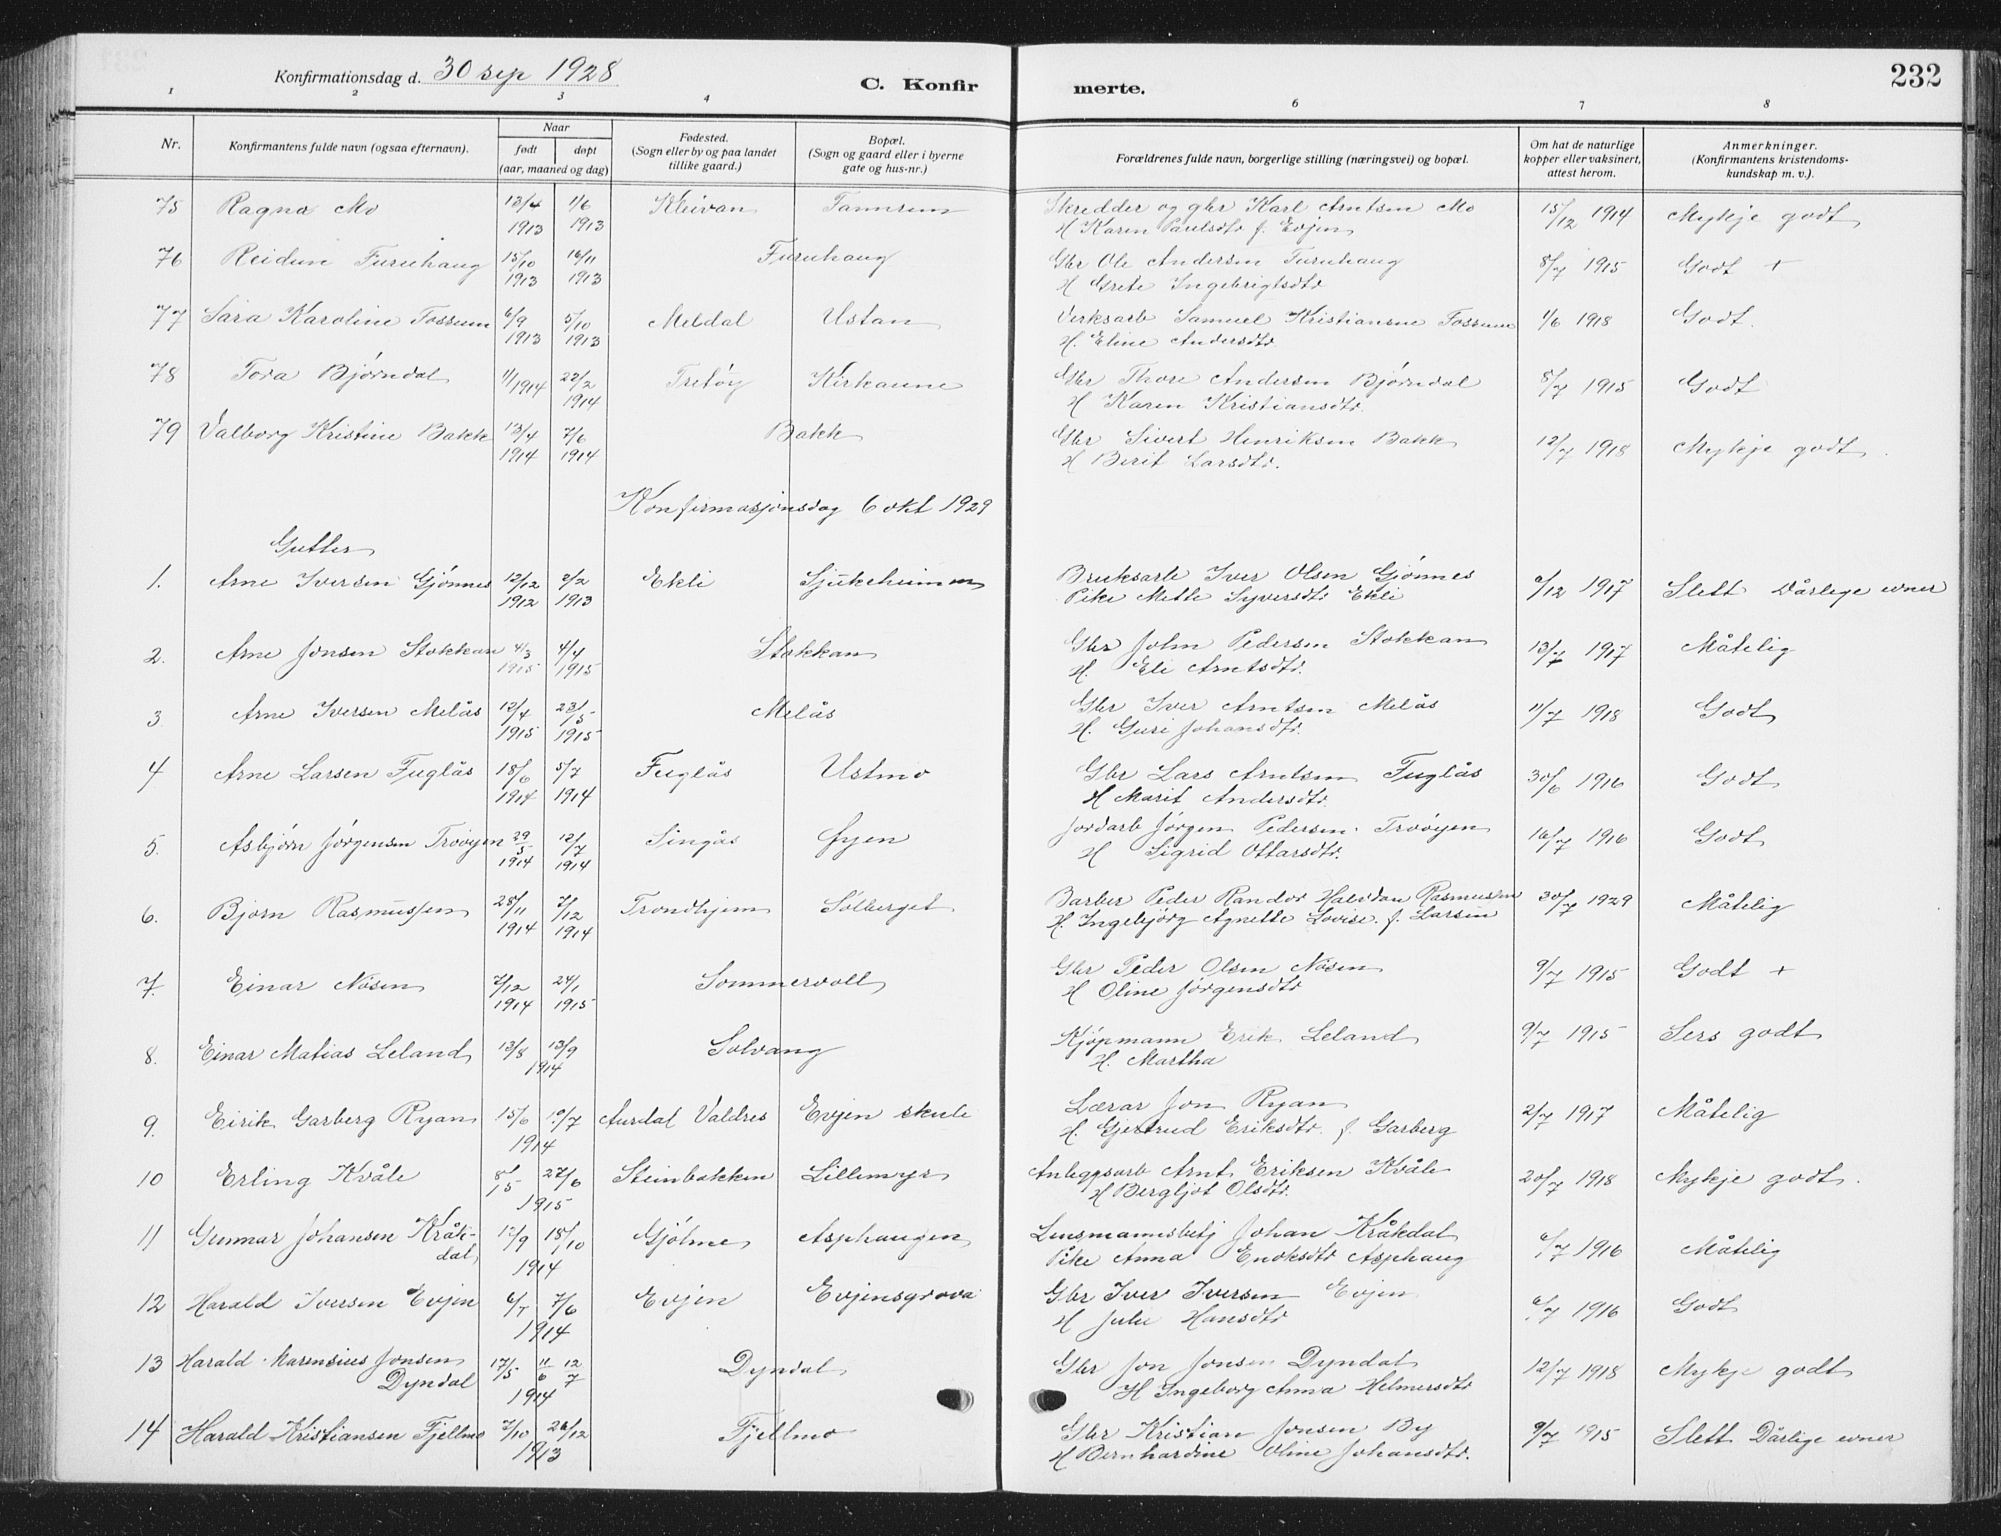 Konfirmationsdag d. 30 sep 1928
C. Konfirmerte.
232
1 2 3 4 6 7 8
Nr.
Konfirmantens fulde navn (ogsaa efternavn).
Naar
født døpt
(aar, maaned og dag)
Fødested.
(Sogn eller by og paa landet
tillike gaard.)
Bopæl.
(Sogn og gaard eller i byerne
gate og hus-nr.)
Forældrenes fulde navn, borgerlige stilling (næringsvei) og bopæl.
Om hat de naturlige
kopper eller vaksinert,
attest herom.
Anmerkninger.
(Konfirmantens kristendoms-
kundskap m. v.).
75 Ragna Mo 13/4 1/6 Kleivan Tamrem Skredder og gbr Karl Arntsen Mo 15/12 1914 Mykje godt
1913 1913 H Karen Paulsdtr f. Evjen
76 Reidun Furuhaug 15/10 16/11 Furuhaug Gbr Ole Andersen Furuhaug 8/7 1915 Godt +
1913 1913 H Grete Ingebrigtsdtr
77 Sara Karoline Fossum 6/9 5/10 Meldal Ustan Verksarb Samuel Kristiansne Fossum 1/6 1918 Godt.
1913 1913 H. Eline Andersdtr
78 Tora Bjørndal 1/1 1914 22/2 Tretøy Kirkaune Gbr Thore Andersen Bjørndal 8/7 1915 Godt
1914 H Karen Kristiansdtr.
79 Valborg Kristine Bakk 13/4 7/6 Bakk Gbr Sivert Henriksen Bakk 12/7 1918 Mykje godt.
1914 1914 H Berit Larsdtr.
Konfirmasjonsdag 6 okt 1929
Gutter
1. Arne Iversen Gjønnes 12/12 2/2 Ekli Sjukeheimen Bruksarb Iver Olsen Gjønnes 6/12 1917 Slett Dårlege evner
1912 1913 Pike Mette Syversdtr Ekli
2. Arne Jonsen Stokkan 4/3 4/4 Stokkan Gbr John Pedersen Stokkan 13/7 1917 Måtelig
1915 1915 H. Eli Arntsdtr.
3 Arne Iversen Melås 12/4 23/5 Melås Gbr Iver Arntsen Melås 11/7 1918 Godt
1915 1915 H. Guri Johansdtr.
4 Arne Larsen Fuglås 18/6 5/7 Fuglås Ustmo Gbr Lars Arntsen Fuglås 30/6 1916 Godt
1914 1914 H Marit Andersdtr.
5. Asbjørn Jørgensen Trøøyen 29/5 12/7 Singås Øyen Jordarb Jørgen Pedersen Trøøyen 16/7 1916 Godt
1914 1914 H Sigrid Ottarsdtr.
6. Bjørn Rasmussen 28/11 7/12 Trondhjem Solberget Barber Peder Randor Halvdan Rasmussen 30/7 1929 Måtelig
1914 1914 H. Ingebjørg Agnette Lovise f. Larsen
7. Einar Nøsen 7/12 24/1 Sommervoll Gbr Peder Olsen Nøsen 9/7 1915 Godt +
1914 1915 H Oline Jørgensdtr
8. Einar Matias Leland 13/8 13/9 Solvang Kjøpmann Erik Leland 9/7 1915 Sers godt
1914 H. Martha
9. Eirik Garberg Ryan 15/6 19/7 Aurdal Valdres Evjen skule Lærar Jon Ryan 2/7 1917 Måtelig
1914 H. Gjertrud Eriksdtr. f. Garberg
10 Erling Kvåle 8/5 27/6 Steinbakken Lillemyr Anleggsarb Arnt Eriksen Kvåle 20/7 1918 Mykje godt.
1915 H Bergljot Olsdtr.
11 Gunnar Johansen Kråk- 12/9 18/10 Gjølme Asphaugen Lensmannsbetj Johan Kråkdal 6/7 1916 Måtelig
dal 1914 Pike Anna Enoksdtr Asphaug
12 Harald Iversen Evjen 6/5 7/6 Evjen Evjensgrova Gbr Iver Iversen Evjen 6/7 1916 Godt
1914 H Julie Hansdtr
13 Harald Marensius Jonsen 17/5 11/6 12/7 Dyndal Gbr Jon Jonsen Dyndal 12/7 1918 Mykje godt
Dyndal 1914 H Ingeborg Anna Helmersdtr
14 Harald Kristiansen Fjellmo 7/10 26/12 Fjellmo Gbr Kristian Jonsen By 9/7 1915 Slett Dårlige evner
1913 H Bernhardine Oline Johansdtr.